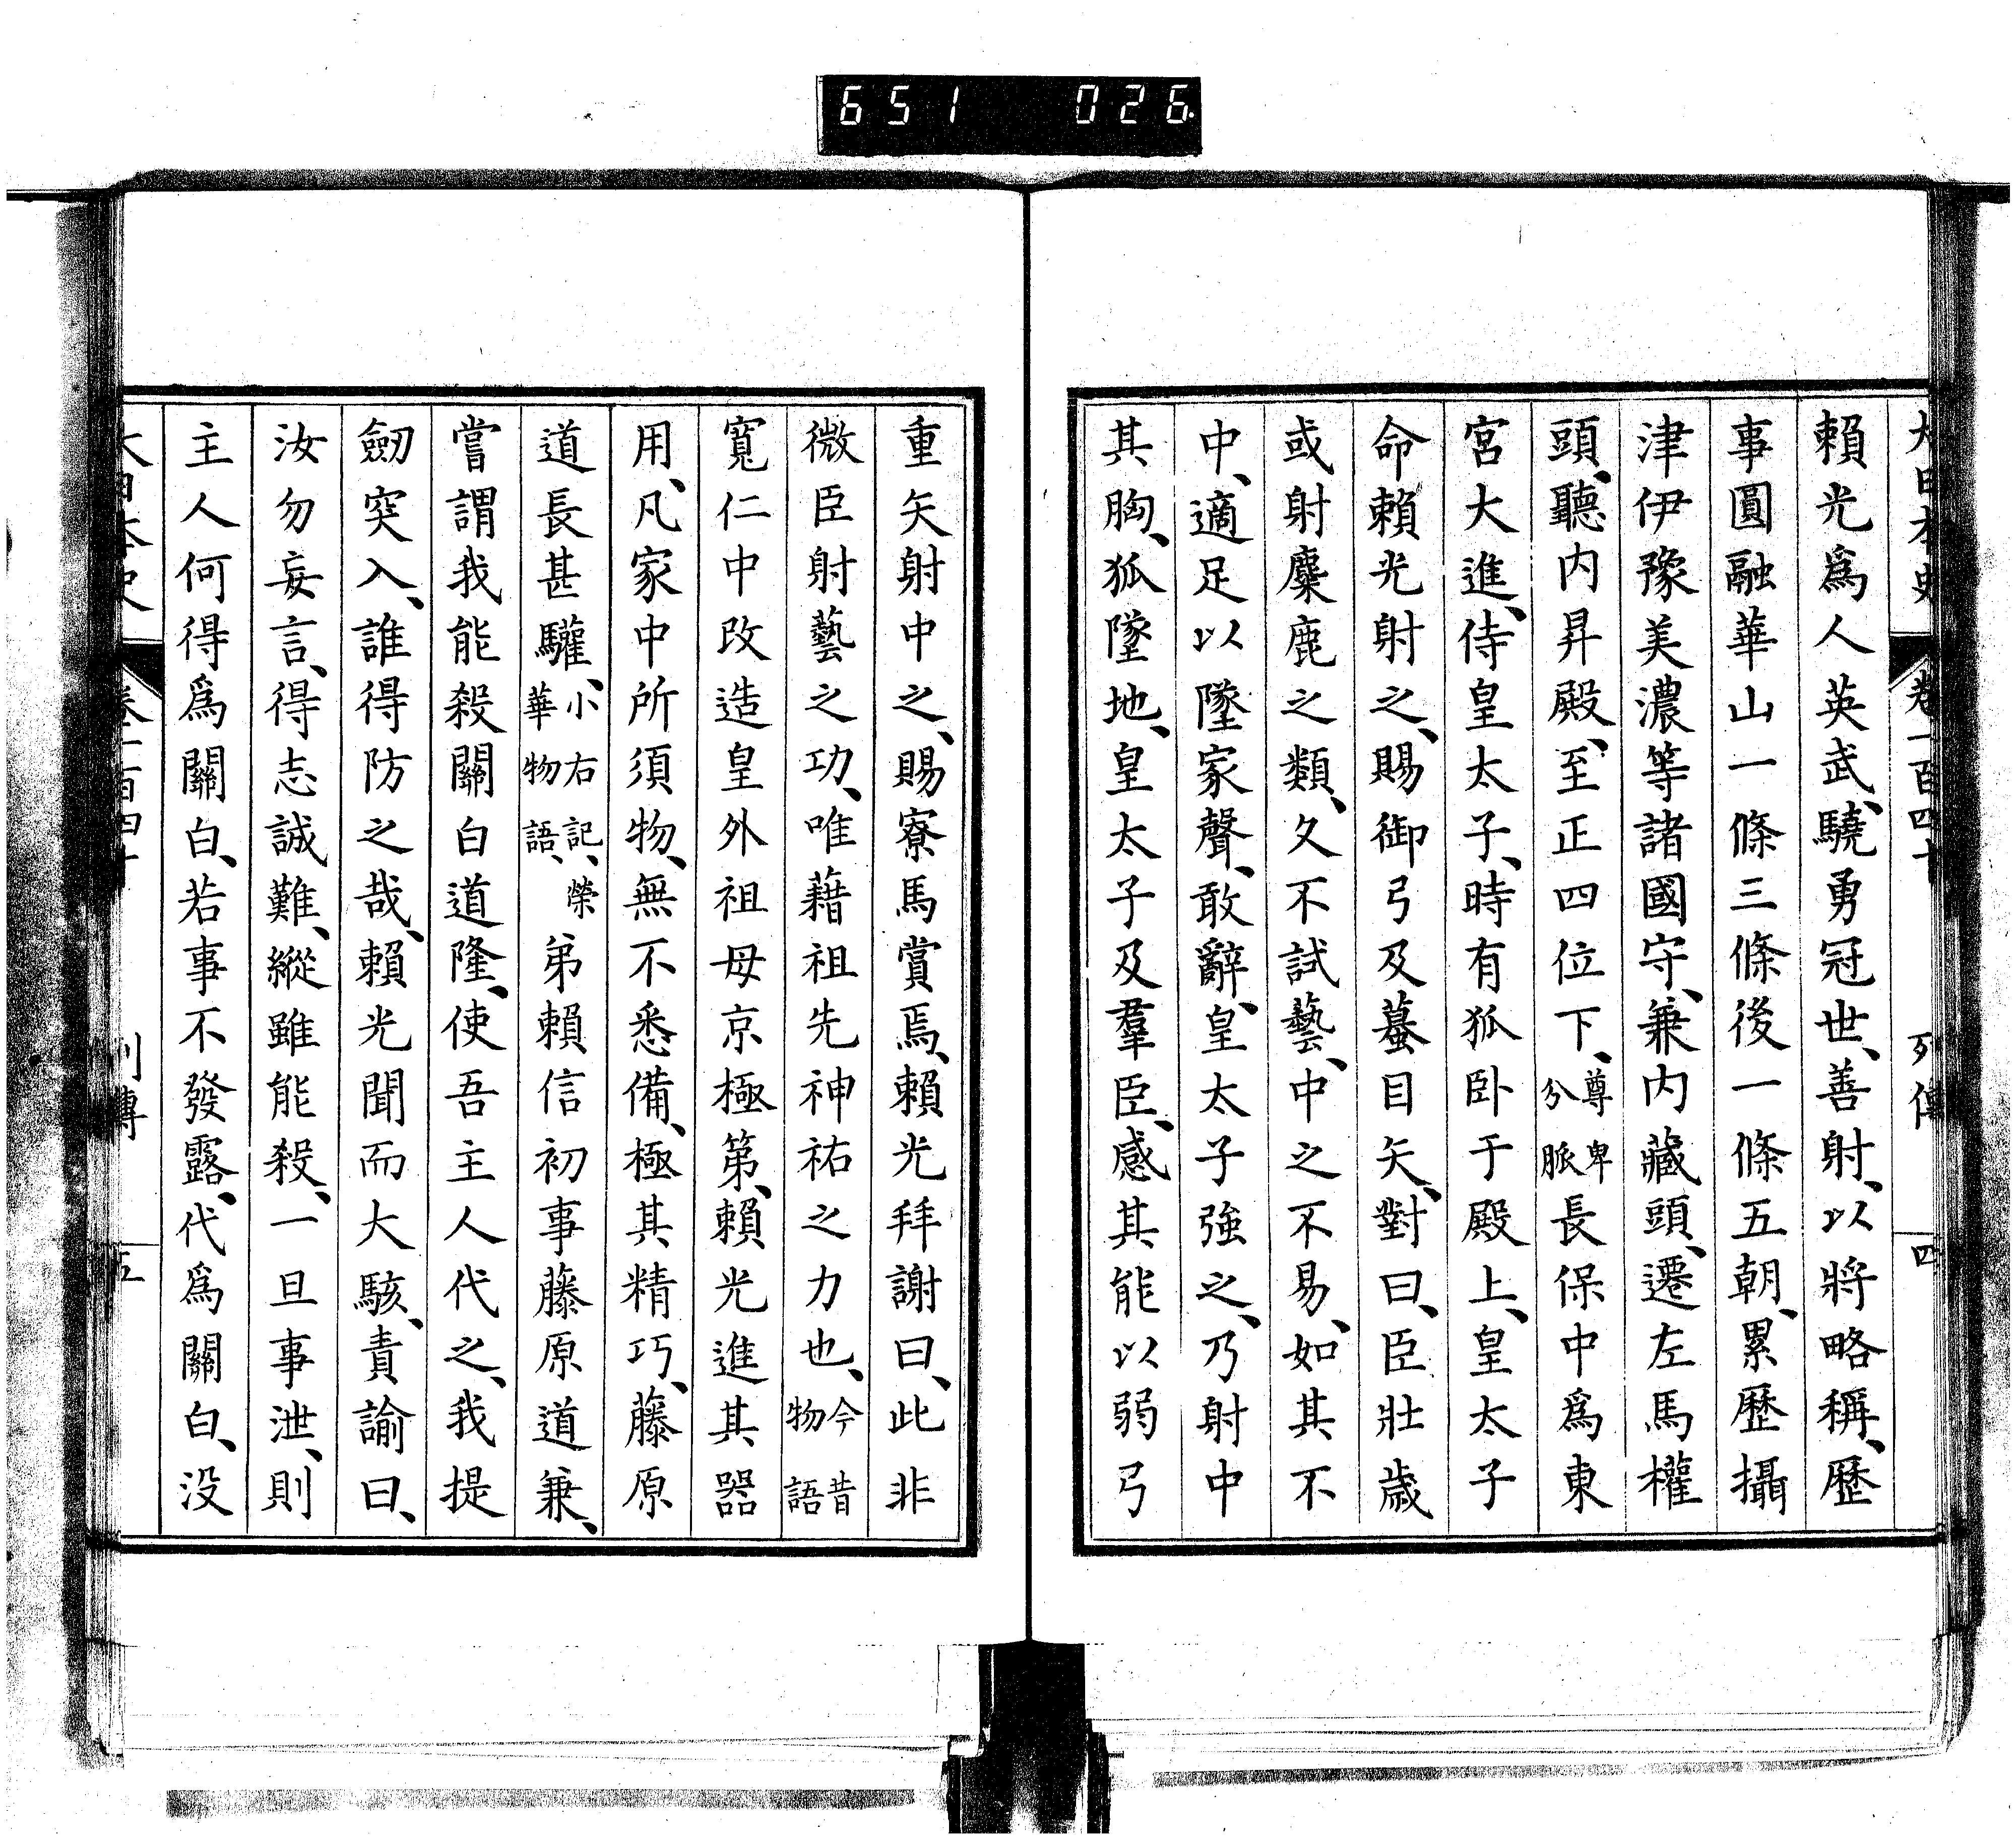 651 026
大日本史 卷一百四十 列傳 四
賴光爲人英武、驍勇冠世、善射、以將略稱、歷
事圓融華山一條三條後一條五朝、累歷攝
津伊豫美濃等諸國守、兼内藏頭、遷左馬權
頭、聽内昇殿、至正四位下、尊卑分脈長保中爲東
宮大進、侍皇太子、時有狐卧于殿上、皇太子
命賴光射之、賜御弓及蟇目矢、對曰、臣壯歲
或射麋鹿之類、久不試藝、中之不易、如其不
中、適足以墜家聲、敢辭、皇太子強之、乃射中
其胸、狐墜地、皇太子及羣臣、感其能以弱弓
重矢射中之、賜寮馬賞焉、賴光拜謝曰、此非
微臣射藝之功、唯藉祖先神祐之力也、今昔物語
寬仁中改造皇外祖母京極第、賴光進其器
用、凡家中所須物、無不悉備、極其精巧、藤原
道長甚驩、小右記、榮華物語、弟賴信初事藤原道兼、
嘗謂我能殺關白道隆、使吾主人代之、我提
劒突入、誰得防之哉、賴光聞而大駭、責諭曰、
汝勿妄言、得志誠難、縱雖能殺、一旦事泄、則
主人何得爲關白、若事不發露、代爲關白、没
大日本史 卷一百四十 列傳 五